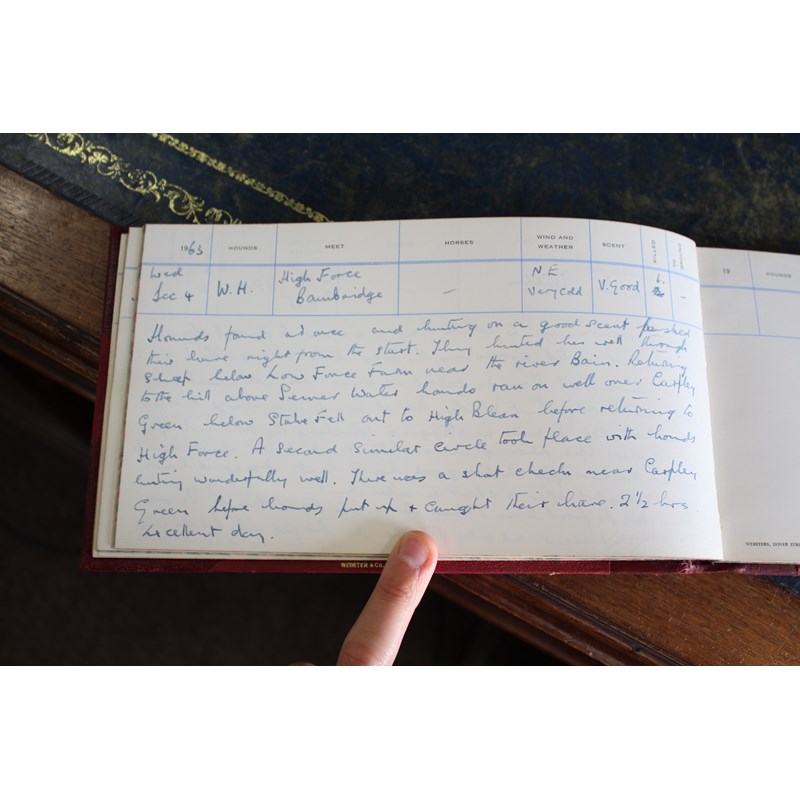 1963 HOUNDS MEET HORSES WIND AND WEATHER SCENT KILLED TO GROUND
Wed Dec 4 W.H. High Force Bainbridge — N.E. Very Cold V. Good 1. -
Hounds found at once and hunting on a good scent pushed
their hare right from the start. They hunted her well through
sheep below Low Force Farm near the river Bain. Returning
to the hill above Semer Water hounds ran on well over Carpley
Green below Stake Fell out to High Blean before returning to
High Force. A second similar circle took place with hounds
hunting wonderfully well. There was a short check near Carpley
Green before hounds put up + caught their hare. 2 1/2 hrs.
Excellent day.
WEBSTER & Co.
19 HOUNDS
WEBSTERS, DOVER STRE